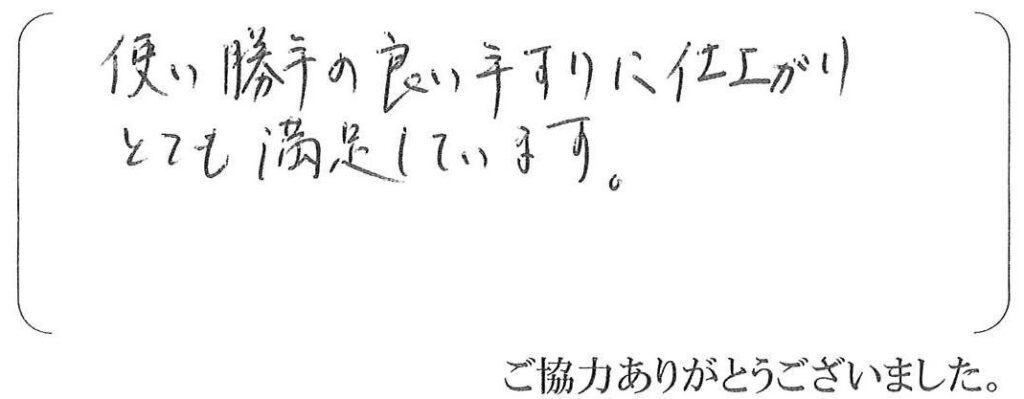 使い勝手の良い手すりに仕上がり
とても満足しています。
ご協力ありがとうございました。